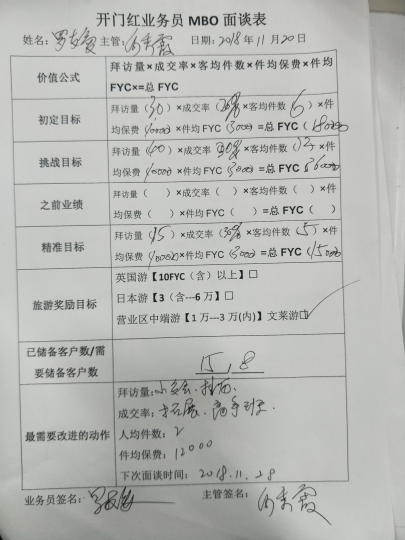 开门红业务员 MBO 面谈表
姓名: 主管: 日期: 2018 年 11 月 20 日
价值公式
拜访量×成交率×客均件数×件均保费×件均
FYC×=总 FYC
初定目标
拜访量 (30) ×成交率 (20%) ×客均件数 (6) ×件
均保费 (10000) ×件均 FYC (3000) =总 FYC (18000)
挑战目标
拜访量 (40) ×成交率 (30%) ×客均件数 (12) ×件
均保费 (10000) ×件均 FYC (3000) =总 FYC (36000)
之前业绩
拜访量 ( ) ×成交率 ( ) ×客均件数 ( ) ×件
均保费 ( ) ×件均 FYC ( ) =总 FYC ( )
精准目标
拜访量 (15) ×成交率 (30%) ×客均件数 (5) ×件
均保费 (10000) ×件均 FYC (3000) =总 FYC (15000)
旅游奖励目标
英国游【10FYC（含）以上】□
日本游【3（含---6 万】□
营业区中端游【1 万---3 万(内)】文莱游□
已储备客户数/需
要储备客户数
15, 8
最需要改进的动作
拜访量:
成交率:
人均件数: 2
件均保费: 12000
下次面谈时间: 2018.11.28
业务员签名: 主管签名: